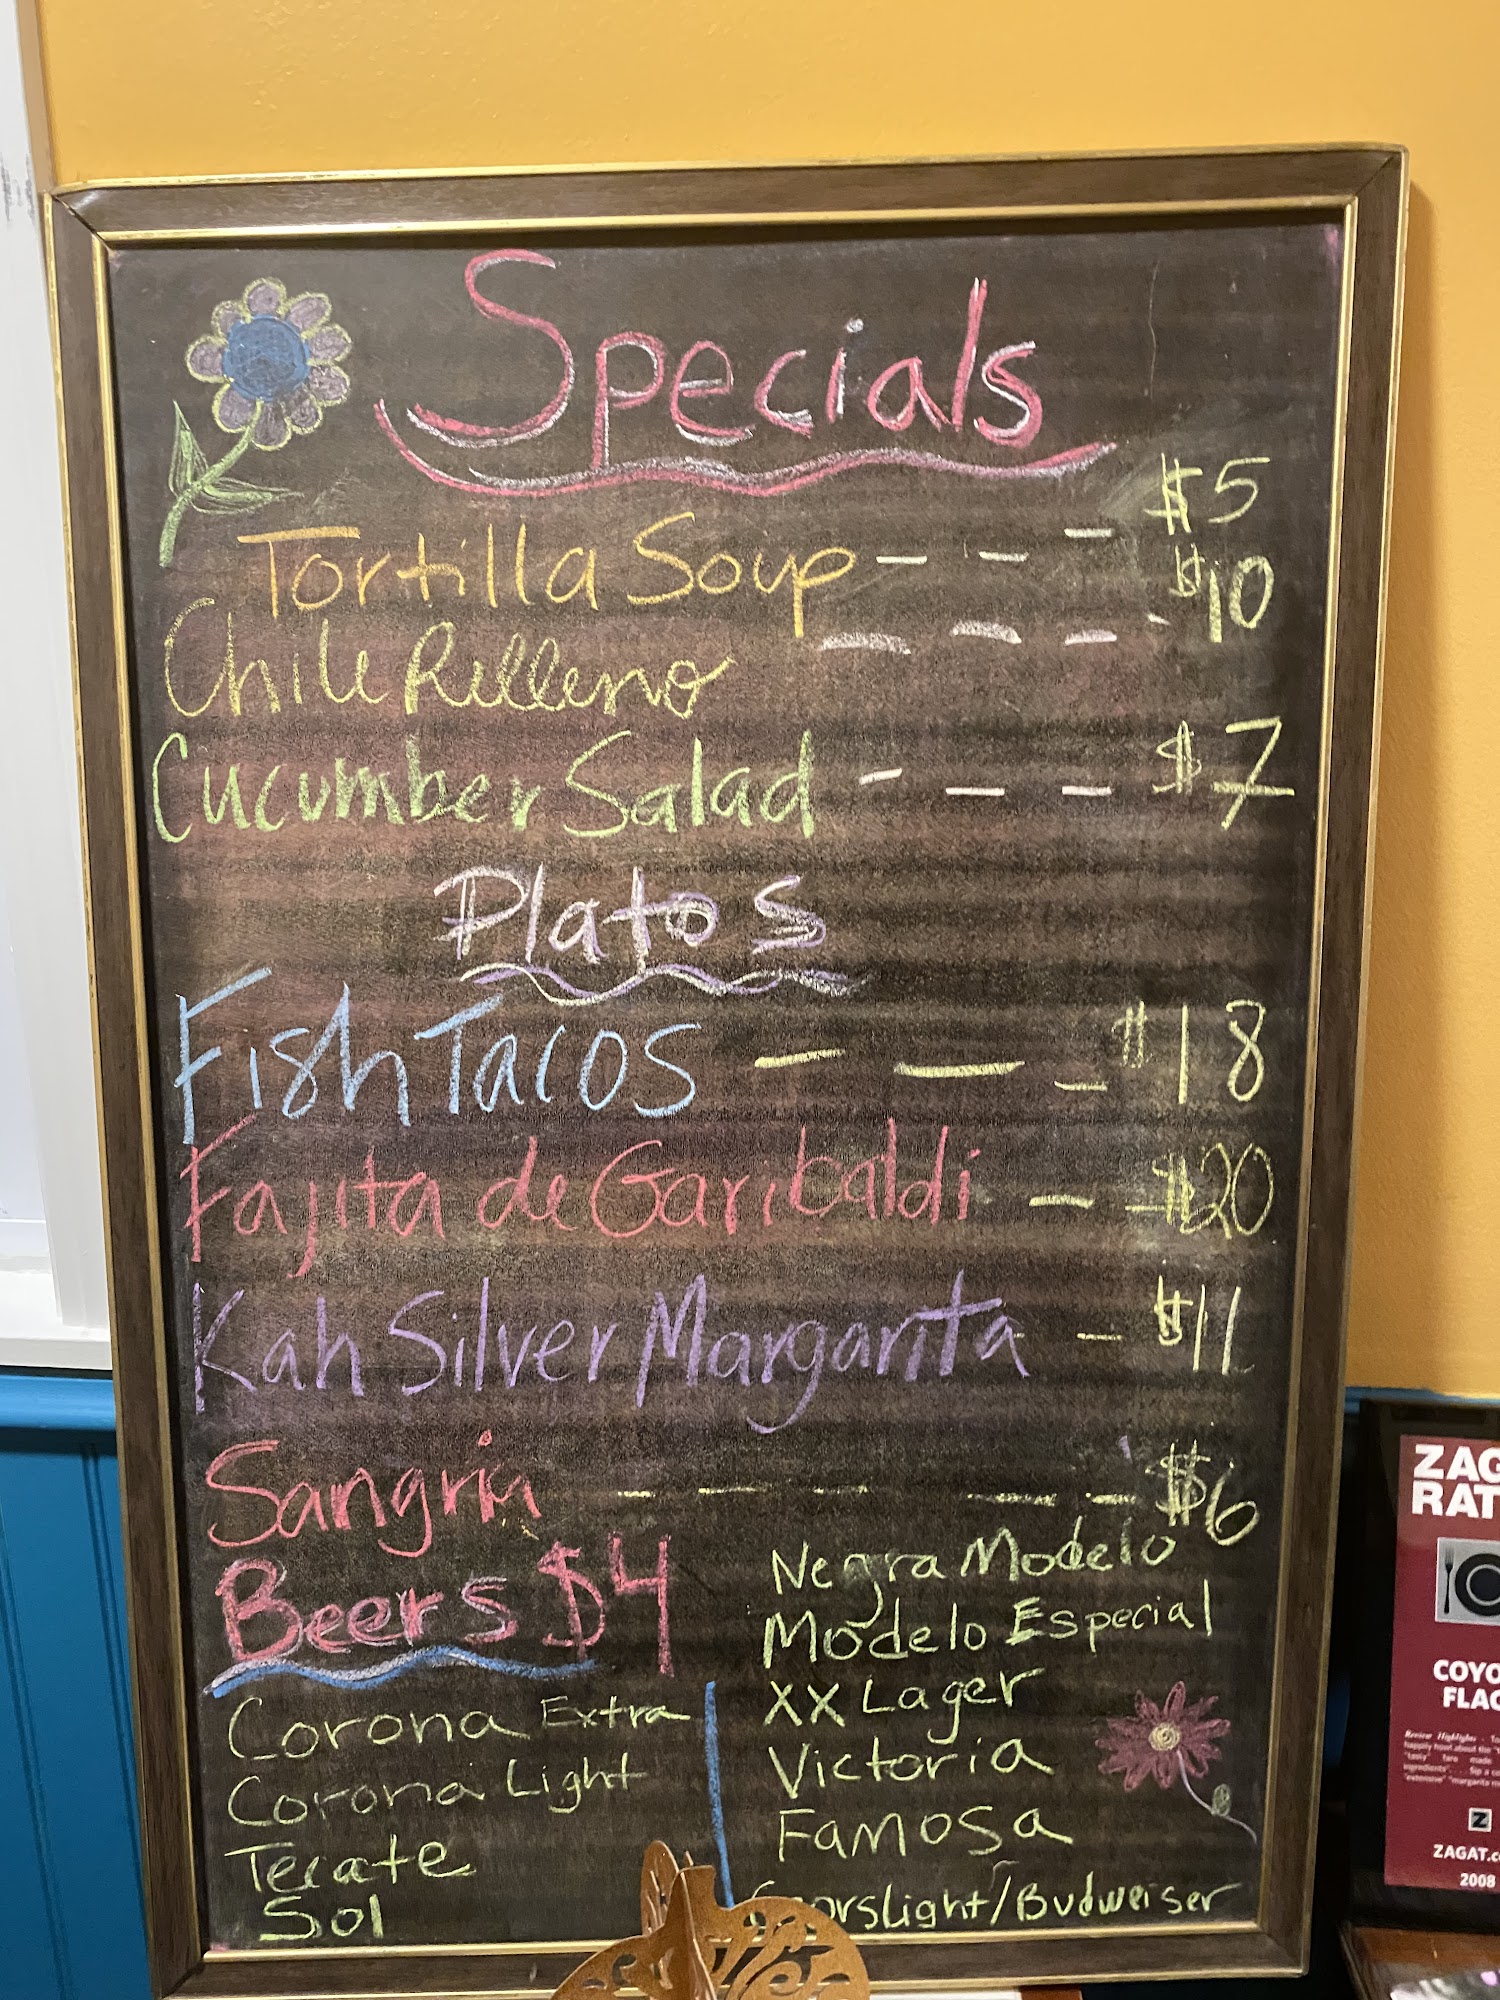 Specials
Tortilla Soup - - - $5
Chile Relleno - - - - $10
Cucumber Salad - - - $7
Platos
Fish Tacos - - - $18
Fajita de Garibaldi - - $20
Kah Silver Margarita - - $11
Sangria - - - - - $6
Beers $4
Corona Extra
Corona Light
Tecate
Sol
Negra Modelo
Modelo Especial
XX Lager
Victoria
Famosa
CoorsLight/Budweiser
ZAG
RAT
COYO
FLAC
Review Highlights
ZAGAT.c
2008